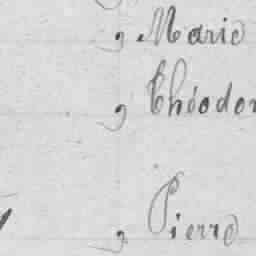 , Marie
, Théodor
, Pierre